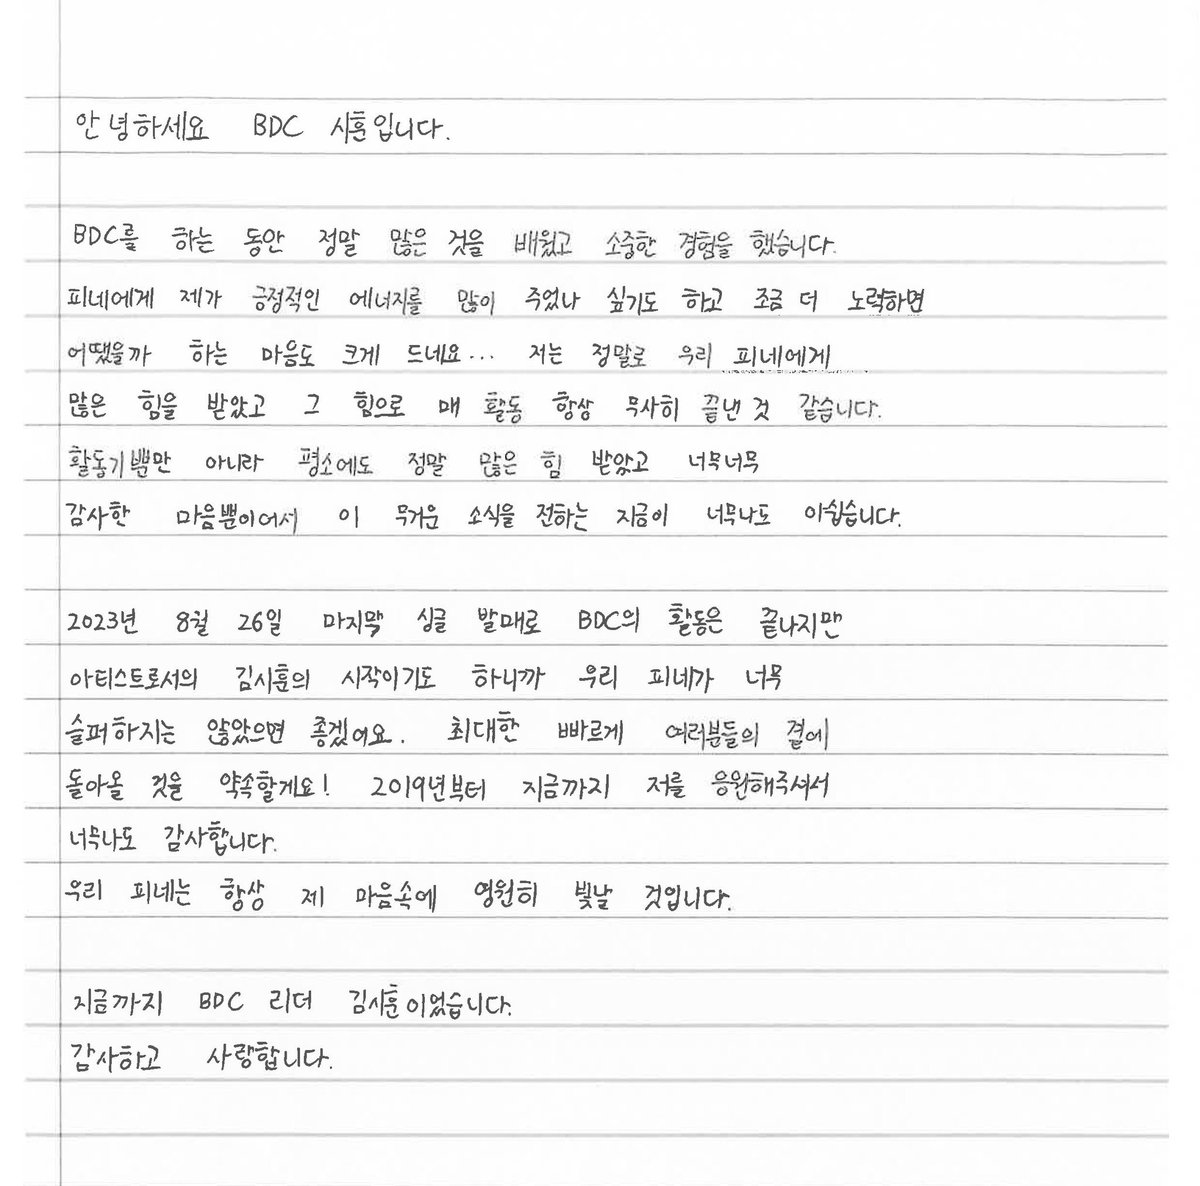 안녕하세요 BDC 시훈입니다.
BDC를 하는 동안 정말 많은 것을 배웠고 소중한 경험을 했습니다.
피네에게 제가 긍정적인 에너지를 많이 주었나 싶기도 하고 조금 더 노력하면
어땠을까 하는 마음도 크게 드네요... 저는 정말로 우리 피네에게
많은 힘을 받았고 그 힘으로 매 활동 항상 무사히 끝낸 것 같습니다.
활동기뿐만 아니라 평소에도 정말 많은 힘 받았고 너무너무
감사한 마음뿐이어서 이 무거운 소식을 전하는 지금이 너무나도 아쉽습니다.
2023년 8월 26일 마지막 싱글 발매로 BDC의 활동은 끝나지만
아티스트로서의 김시훈의 시작이기도 하니까 우리 피네가 너무
슬퍼하지는 않았으면 좋겠어요. 최대한 빠르게 여러분들의 곁에
돌아올 것을 약속할게요! 2019년부터 지금까지 저를 응원해주셔서
너무나도 감사합니다.
우리 피네는 항상 제 마음속에 영원히 빛날 것입니다.
지금까지 BDC 리더 김시훈이었습니다.
감사하고 사랑합니다.